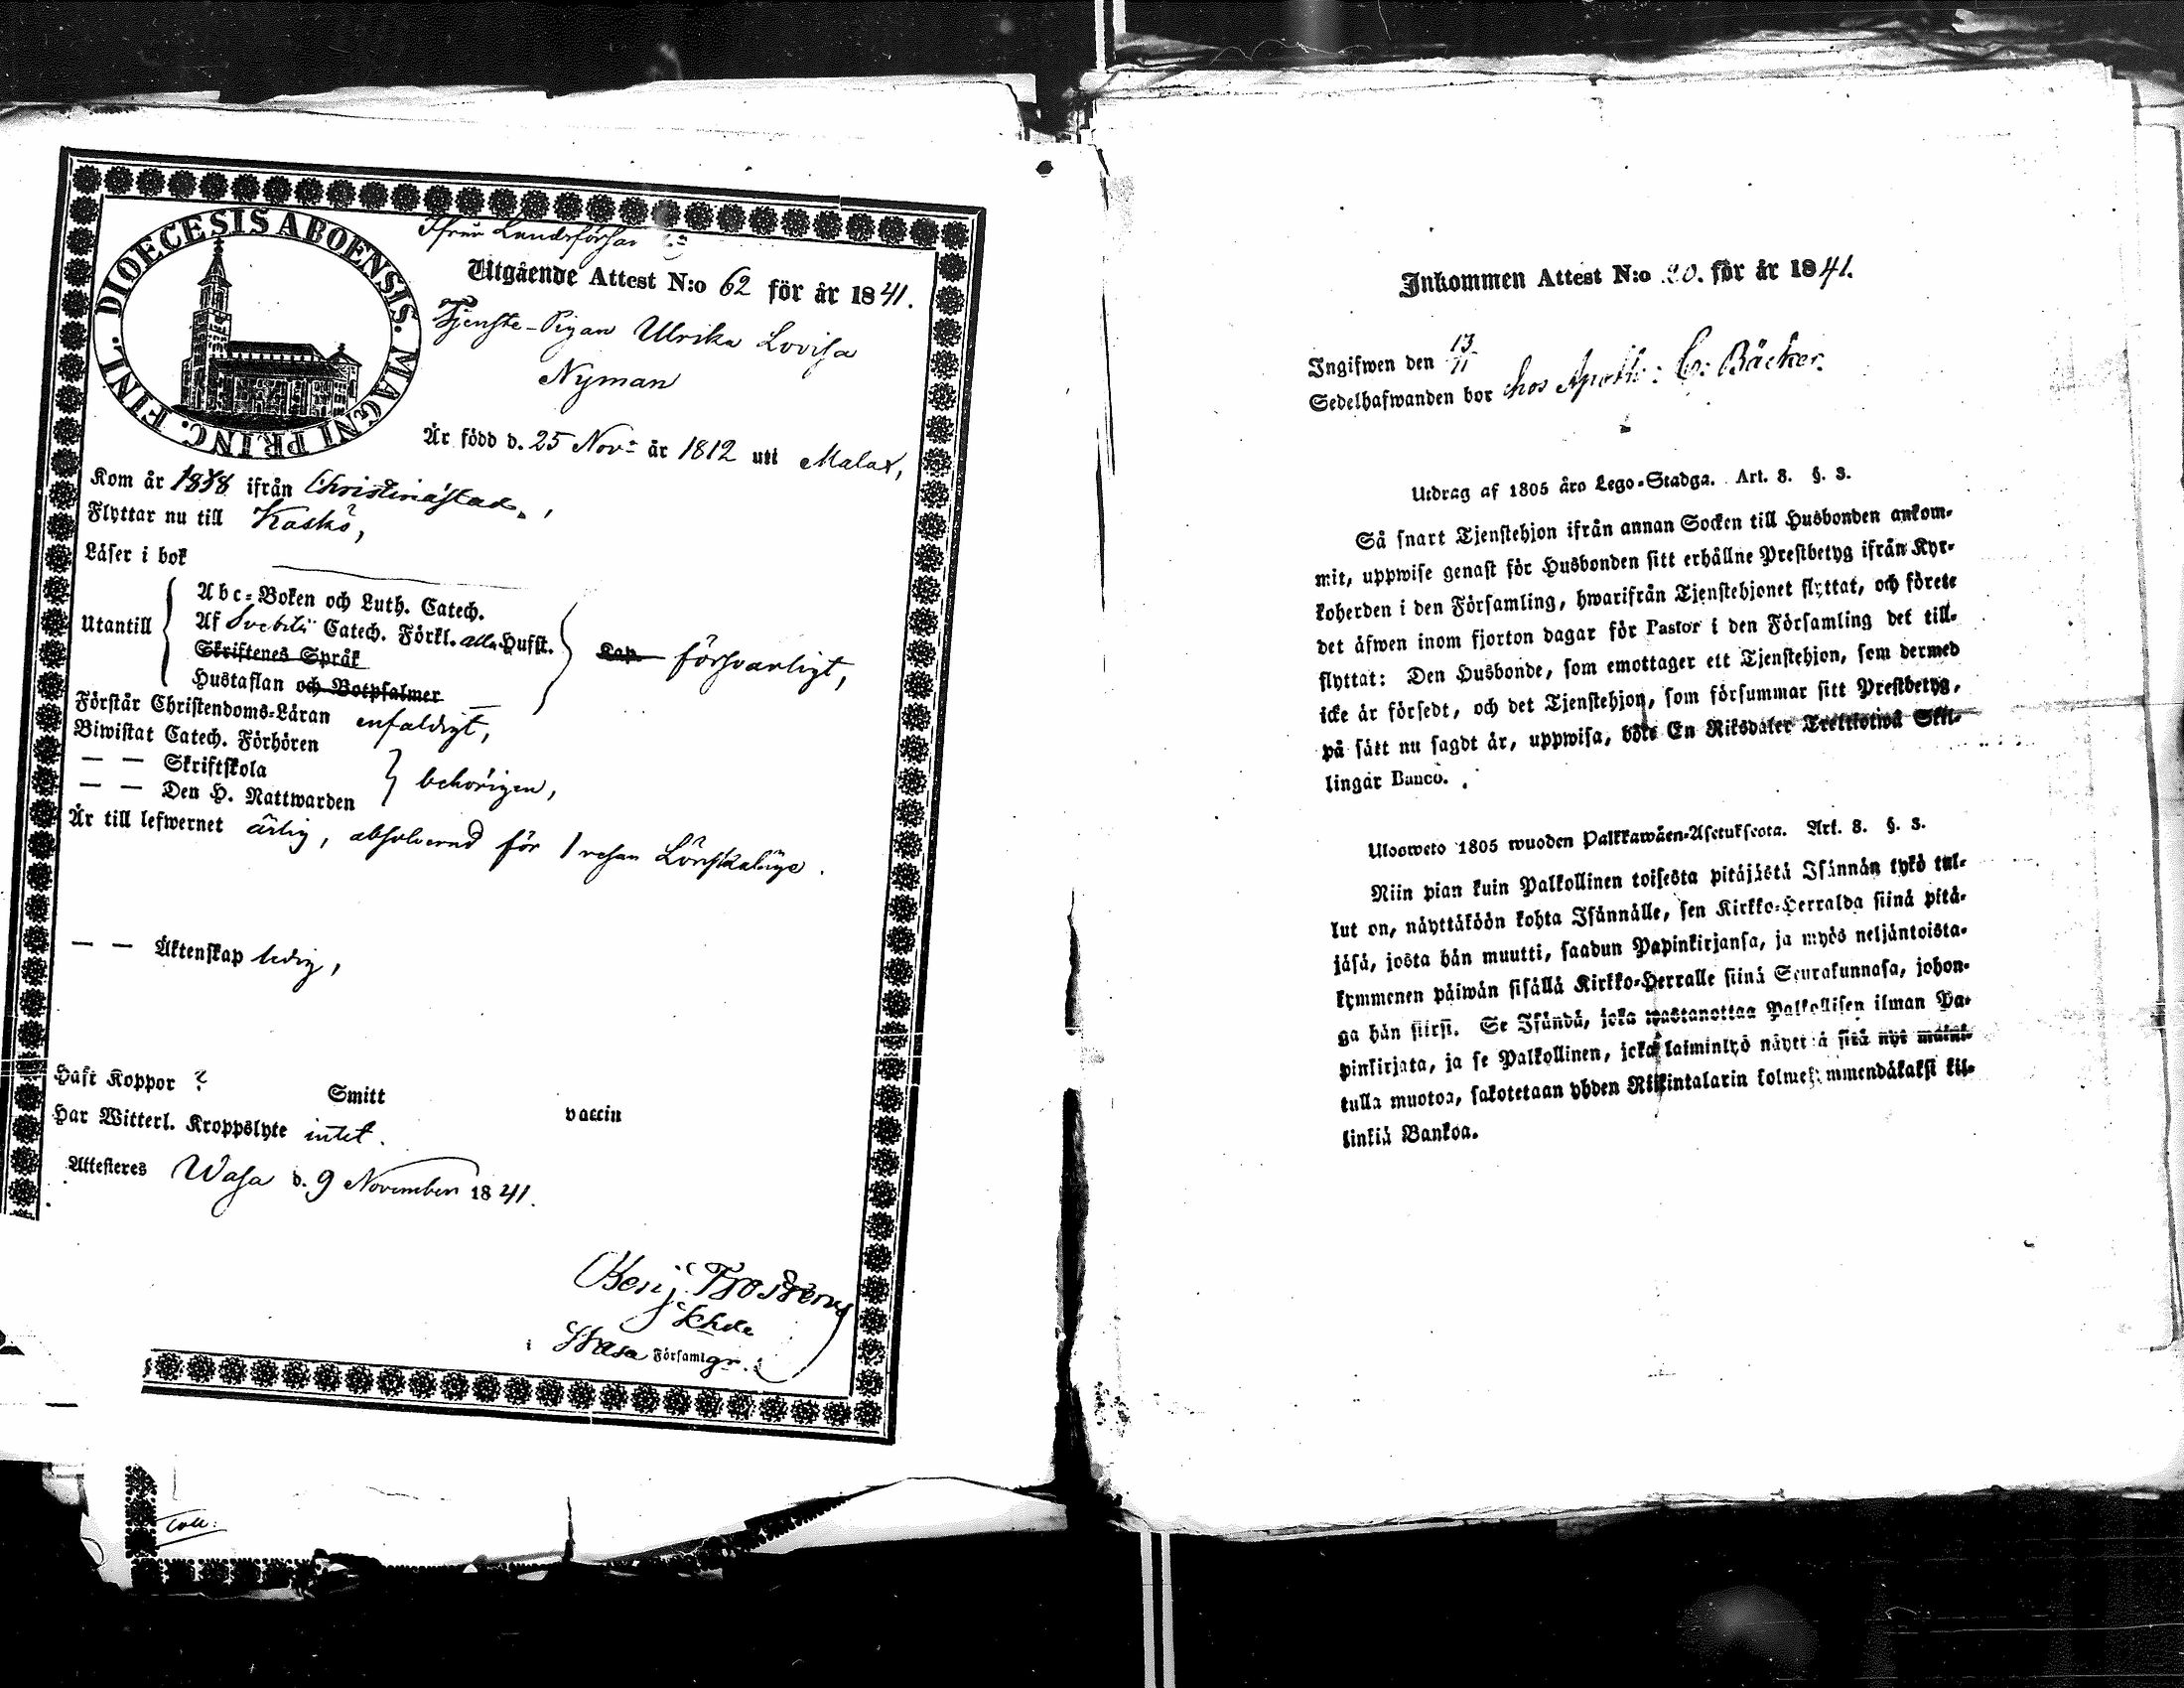 DIOECESIS ABOENSIS. MAGNI PRINC. FINL.
Utgående Attest N:o 62 för år 1841.
Tjenste-Pigan Ulrika Lovisa
Nyman
Är född d. 25 Nov: år 1812 uti Malax,
Kom år 1838 ifrån Christinæstad,
Flyttar nu till Kaskö,
Läser i bok
Utantill
Abc-Boken och Luth. Catech.
Af Svebilii Catech. Förkl. alla Hufst.
Skriftenes Språk
Hustaflan och Botpsalmer
Cap. försvarligt,
Förstår Christendoms-Läran enfaldigt,
Biwistat Catech. Förhören
— — Skriftskola
— — Den H. Nattwarden
behörigen,
Är till lefwernet ärlig, absolverad för 1 resan Lönskaläge.
— — Äktenskap ledig,
Haft Koppor ? Smitt vaccin
Har Witterl. Kroppslyte intet.
Attesteres Wasa d. 9 November 1841.
Benj. Frosterus
i Wasa Församlgr.
Coll:
Inkommen Attest N:o 20. för år 1841.
Ingifwen den 13/11
Sedelhafwanden bor hos Apoth: C: Bäcker.
Utdrag af 1805 åro Lego-Stadga. Art. 8. §. 3.
Så snart Tjenstehjon ifrån annan Socken till Husbonden ankom-
mit, uppwise genast för Husbonden sitt erhållne Prestbetyg ifrån Kyr-
koherden i den Församling, hwarifrån Tjenstehjonet flyttat, och förete
det äfwen inom fjorton dagar för Pastor i den Församling det till-
flyttat: Den Husbonde, som emottager ett Tjenstehjon, som dermed
icke är försedt, och det Tjenstehjon, som försummar sitt Prestbetyg,
på sätt nu sagdt är, uppwisa, böte En Riksdaler Trettiotwå Skil-
lingar Banco.
Ulosweto 1805 wuoden Palkkawäen-Asetuksesta. Art. 8. §. 3.
Niin pian kuin Palkollinen toisesta pitäjästä Isännän tykö tul-
lut on, näyttäköön kohta Isännälle, sen Kirkko-Herralda siinä pitä-
jäsä, josta hän muutti, saadun Papinkirjansa, ja myös neljäntoista-
kymmenen päiwän sisällä Kirkko-Herralle siinä Seurakunnasa, johon-
ga hän siirsi. Se Isändä, joka wastanottaa Palkollisen ilman Pa-
pinkirjata, ja se Palkollinen, joka laiminlyö näyttää sitä nyt mainit-
tulla muotoa, sakotetaan yhden Riikintalarin kolmekymmendäkaksi kil-
linkiä Bankoa.